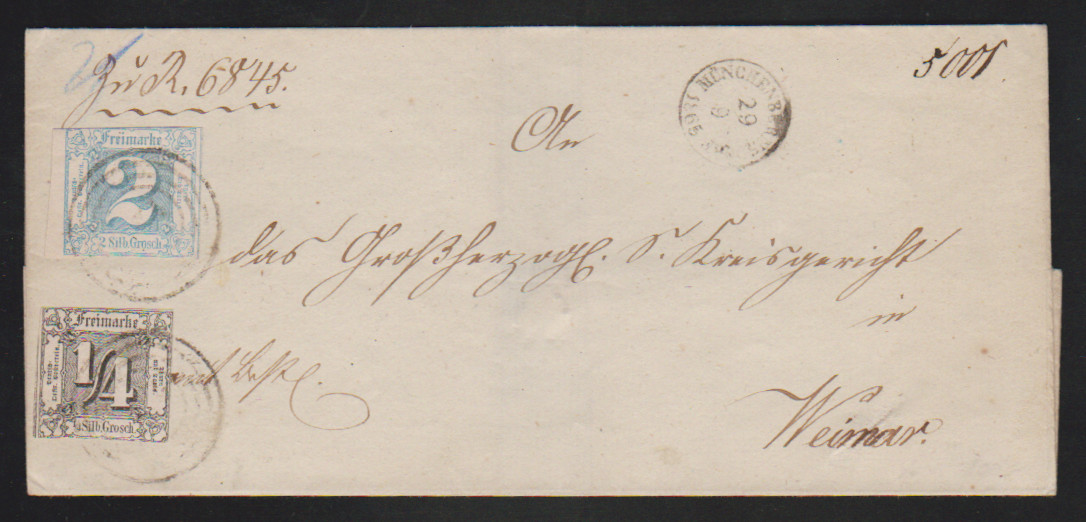 Zu R. 6845.
5001.
MÜNCHENBERNSD
29
9
1865
An
Freimarke
2
2 Silb. Grosch
das Großherzogl. S. Kreisgericht
in
Freimarke
1/4
1/4 Silb. Grosch.
Weimar.